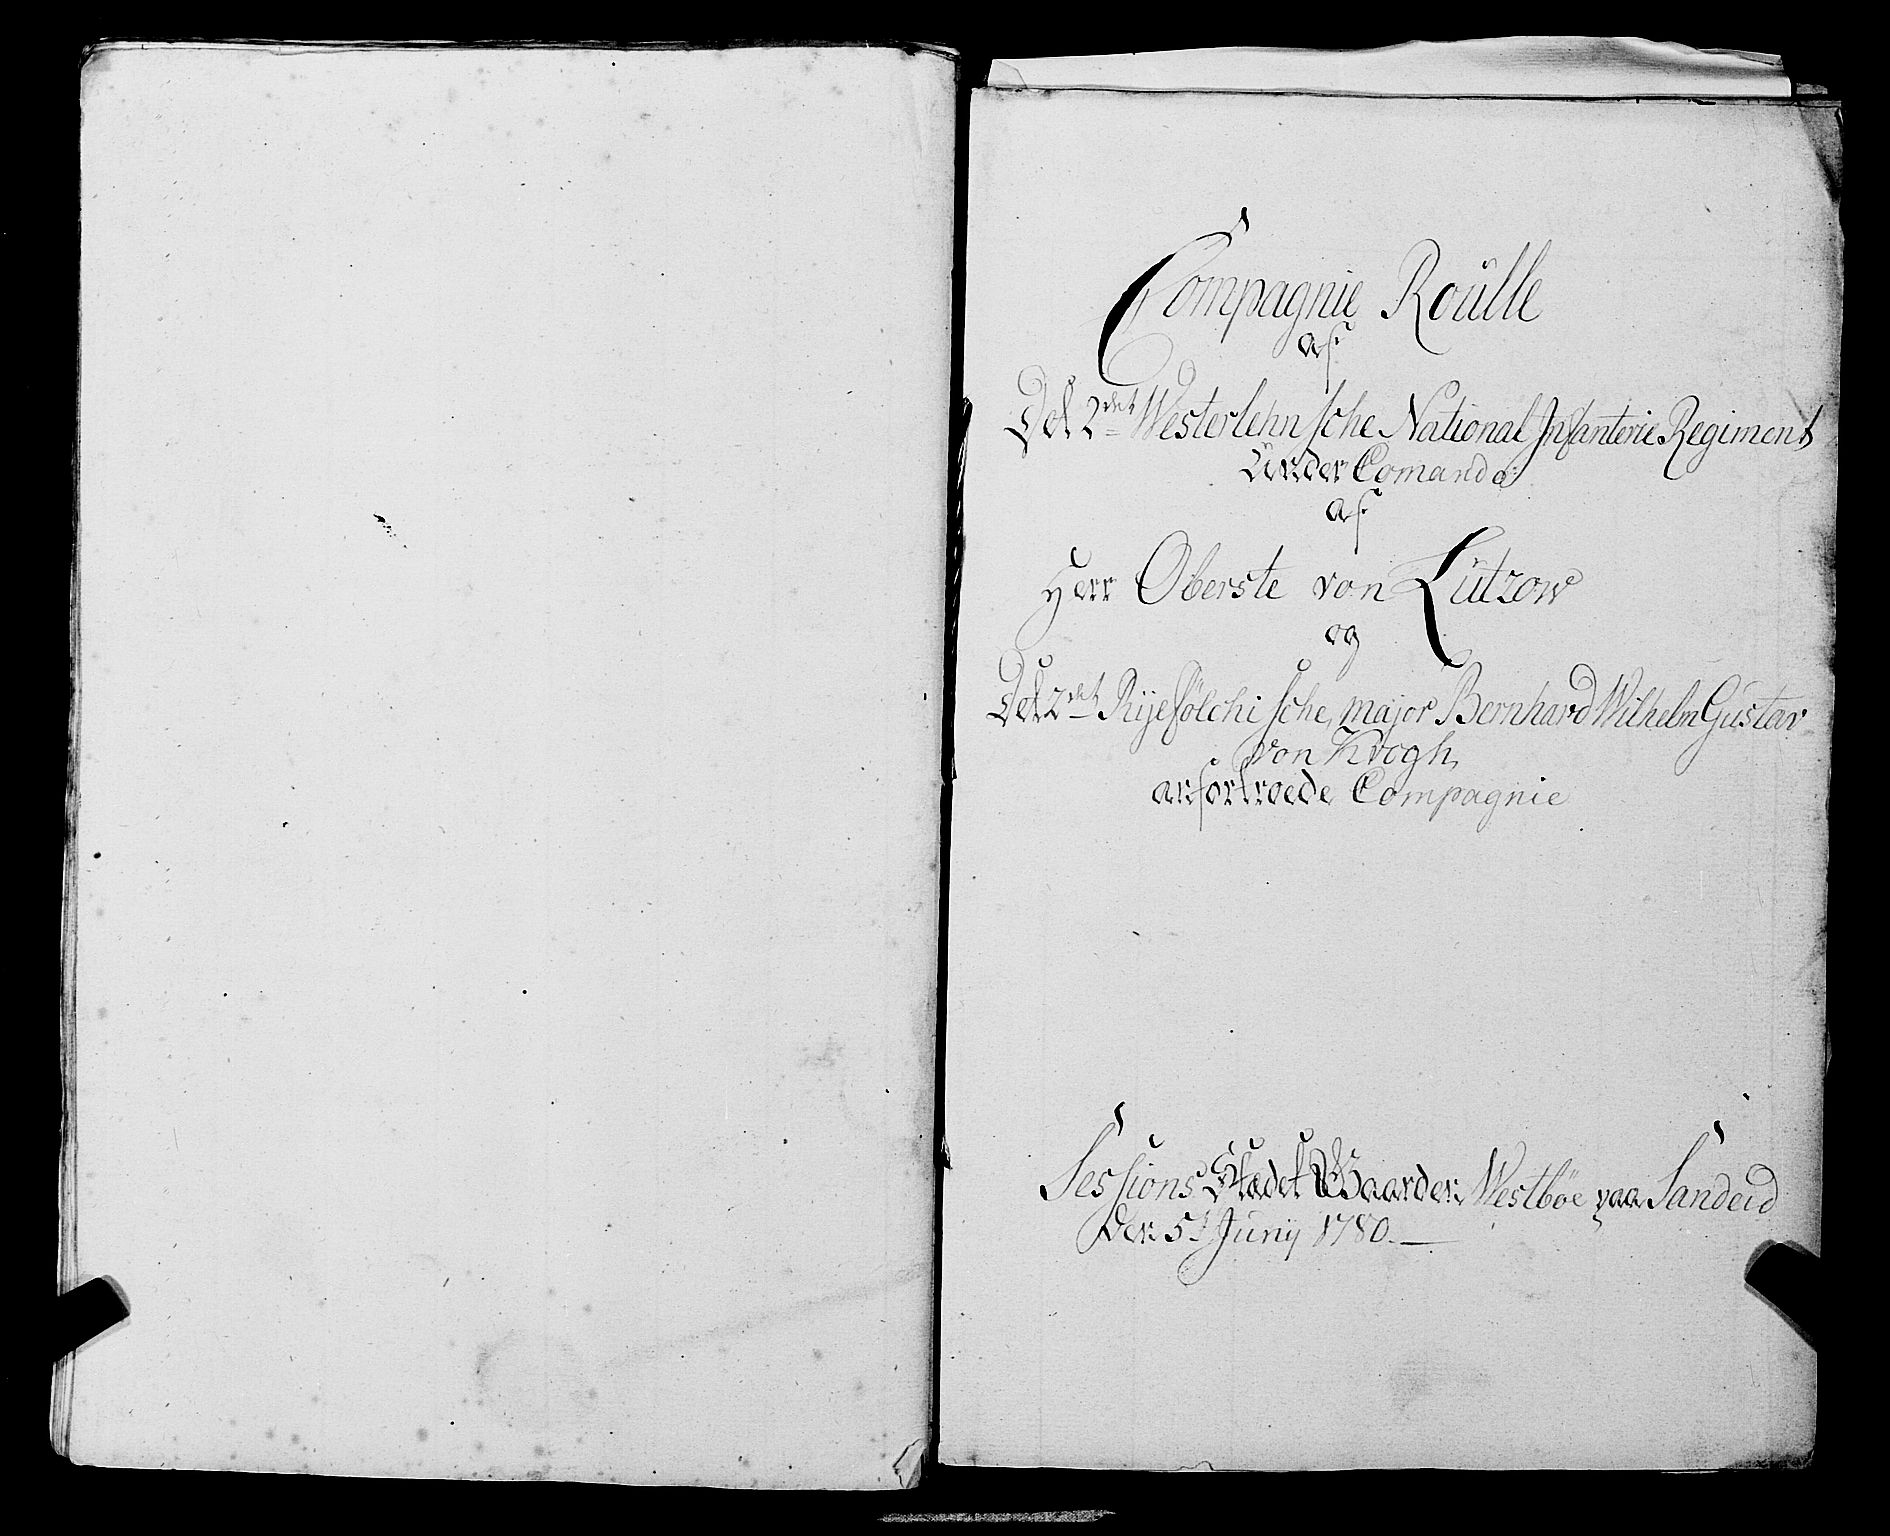 Compagnie Roülle
af
Det 2det Westerlehnsche National Infanterie Regiment
under Comando
af
Herr Oberste von Lützow
og
Det 2det Rijefölchische, major Bernhard Wilhelm Gustav
von Krogh,
anfortroede Compagnie
Sessions Stædet Gaarden Westböe paa Sandeid
Den 5t Junij 1780.